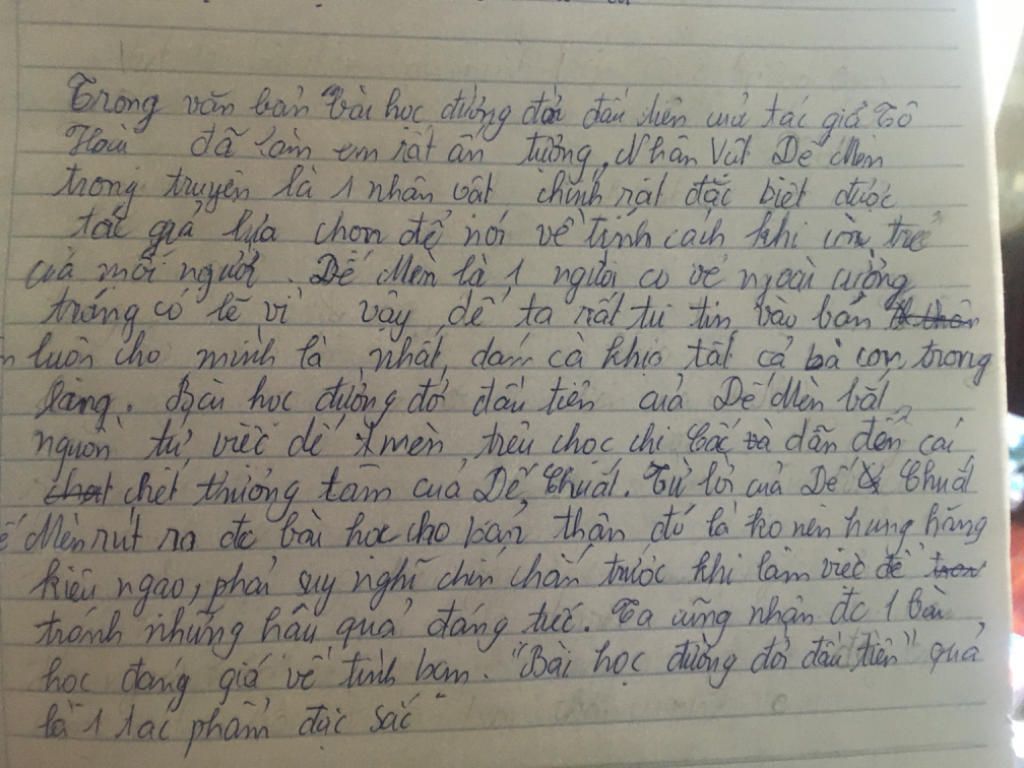 Trong văn bản bài học đường đời đầu tiên của tác giả Tô
Hoài đã làm em rất ấn tượng. Nhân vật Dế Mèn
trong truyện là 1 nhân vật chính rất đặc biệt được
tác giả lựa chọn để nói về tính cách khi còn trẻ
của mỗi người. Dế Mèn là 1 người có vẻ ngoài cường
tráng có lẽ vì vậy, dế ta rất tự tin vào bản
luôn cho mình là nhất, dám cà khịa tất cả bà con trong
làng. Bài học đường đời đầu tiên của Dế Mèn bắt
nguồn từ việc dế mèn trêu chọc chị Cốc dẫn đến cái
chết thương tâm của Dế Choắt. Từ lời của Dế Choắt
Mèn rút ra đc bài học cho bản thân đó là ko nên hung hăng
kiêu ngạo, phải suy nghĩ chín chắn trước khi làm việc để
tránh những hậu quả đáng tiếc. Ta cũng nhận đc 1 bài
học đáng giá về tình bạn. "Bài học đường đời đầu tiên" quả
là 1 tác phẩm đặc sắc